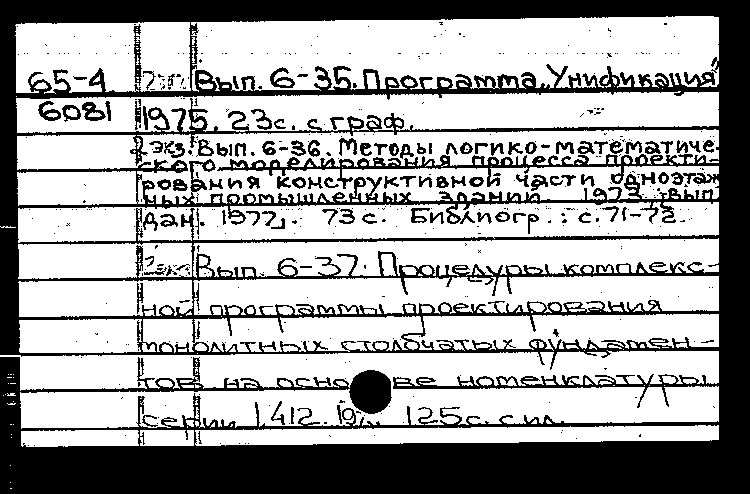 65-4 2 экз. Вып. 6-35. Программа „Унификация"
6081 1975. 23с. с граф.
2 экз. Вып. 6-36. Методы логико-математиче-
ского моделирования процесса проекти-
рования конструктивной части одноэтаж
ных промышленных зданий. 1973, вып.
дан. 1977. 73 с. Библиогр.: с. 71-72.
2 экз. Вып. 6-37. Процедуры комплекс-
ной программы проектирования
монолитных столбчатых фундамен-
тов на основе номенклатуры
серии 1.412. 125с. с ил.